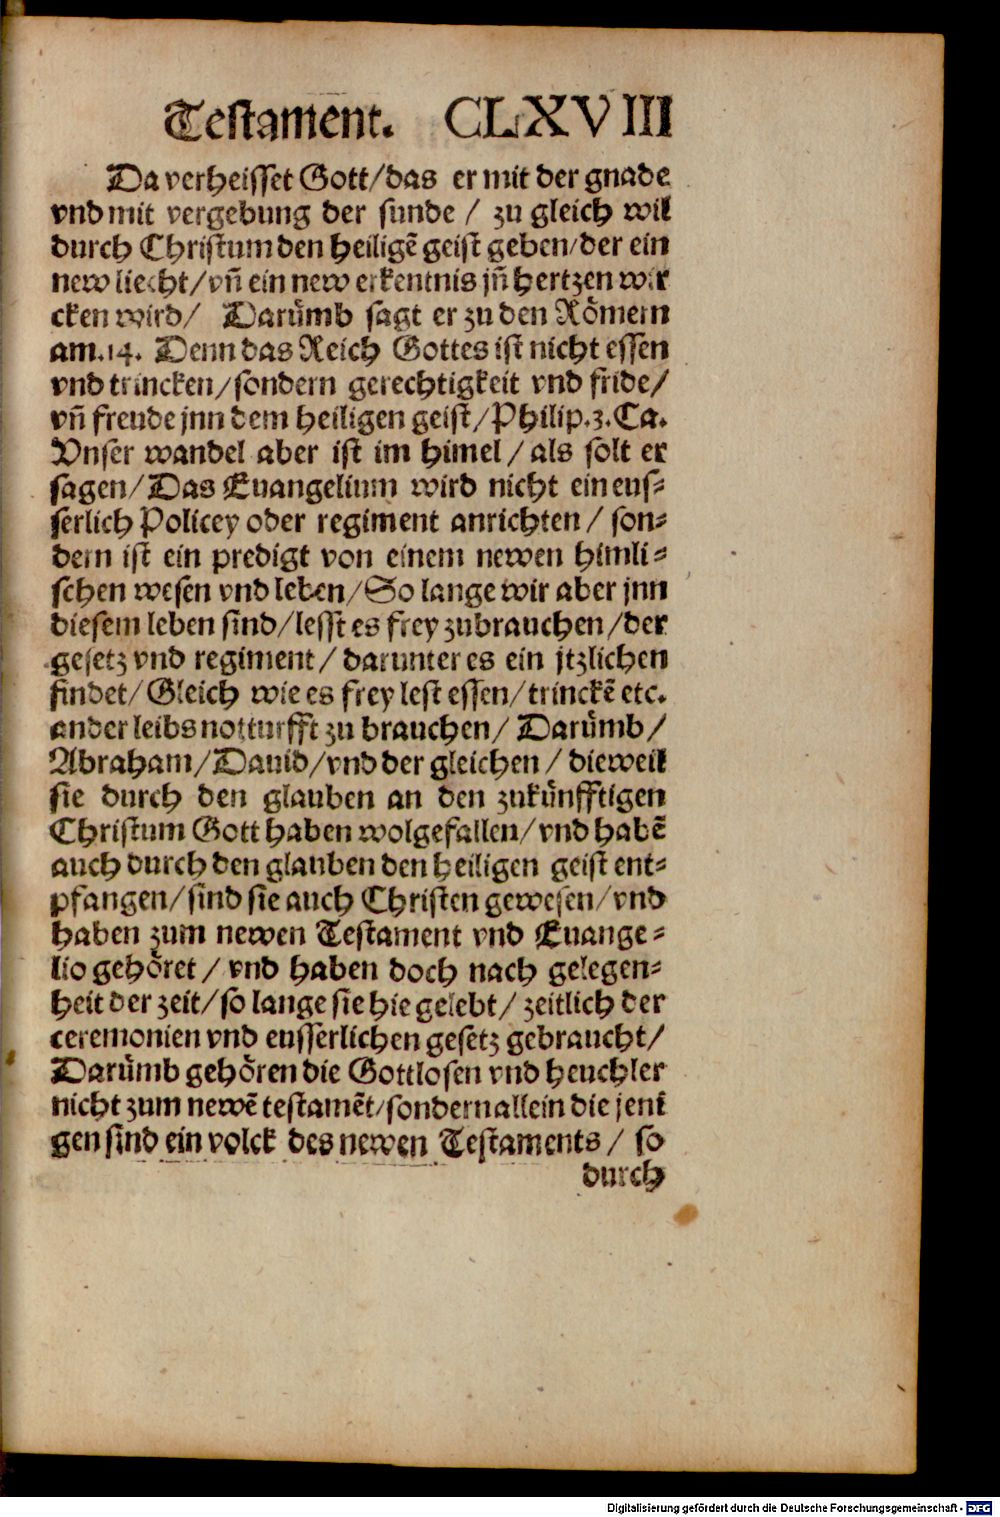 Testament. CLXVIII
Da verheisset Gott/das er mit der gnade
vnd mit vergebung der sunde / zu gleich wil
durch Christum den heiligẽ geist geben/der ein
new liecht/vñ ein new erkentnis jñ hertzen wir
cken wird/ Darümb sagt er zu den Römern
am.14. Denn das Reich Gottes ist nicht essen
vnd trincken/sondern gerechtigkeit vnd fride/
vñ freude jnn dem heiligen geist/Philip.3.Ca.
Vnser wandel aber ist im himel / als solt er
sagen/Das Euangelium wird nicht ein eus-
serlich Policey oder regiment anrichten / son-
dern ist ein predigt von einem newen himli-
schen wesen vnd leben/So lange wir aber jnn
diesem leben sind/lesst es frey zubrauchen/der
gesetz vnd regiment / darunter es ein jtzlichen
findet/Gleich wie es frey lest essen/trinckẽ etc.
ander leibs notturfft zu brauchen/ Darümb/
Abraham/Dauid/vnd der gleichen / dieweil
sie durch den glauben an den zukünfftigen
Christum Gott haben wolgefallen/vnd habẽ
auch durch den glauben den heiligen geist ent-
pfangen/sind sie auch Christen gewesen/vnd
haben zum newen Testament vnd Euange-
lio gehöret / vnd haben doch nach gelegen-
heit der zeit/so lange sie hie gelebt/ zeitlich der
ceremonien vnd eusserlichen gesetz gebraucht/
Darümb gehören die Gottlosen vnd heuchler
nicht zum newẽ testamẽt/sondern allein die jeni
gen sind ein volck des newen Testaments / so
durch
Digitalisierung gefördert durch die Deutsche Forschungsgemeinschaft - DFG